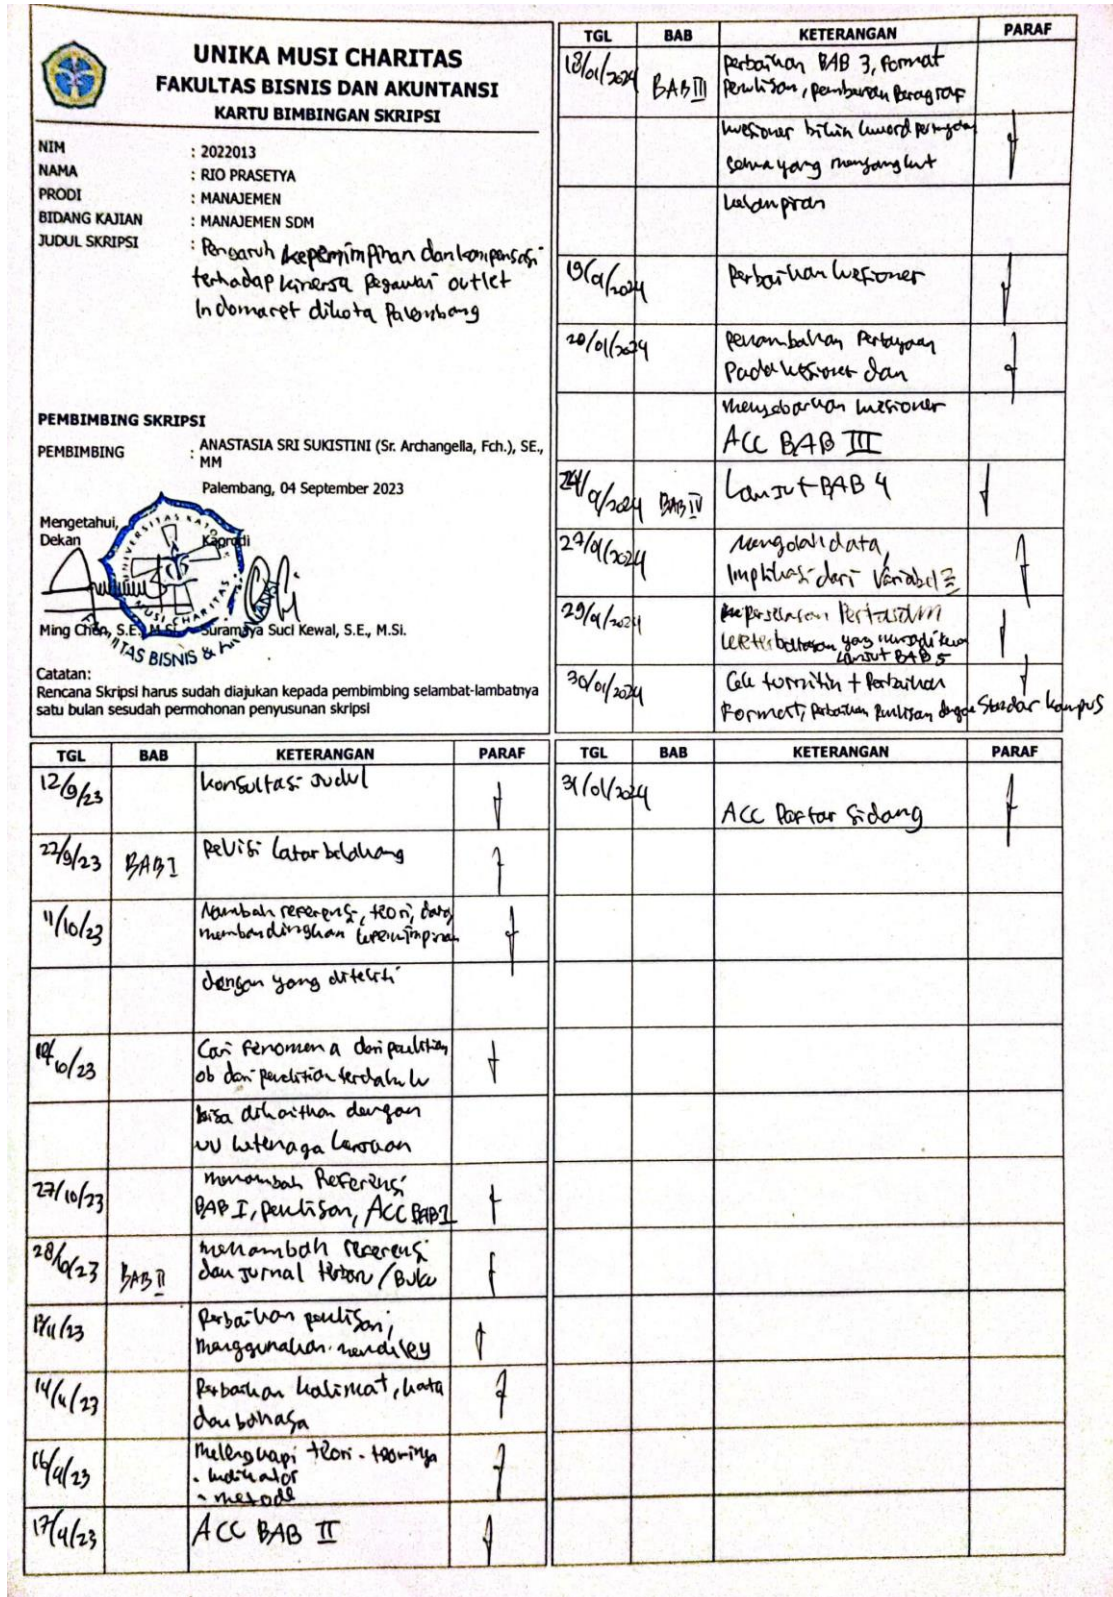 UNIKA MUSI CHARITAS
FAKULTAS BISNIS DAN AKUNTANSI
KARTU BIMBINGAN SKRIPSI
NIM : 2022013
NAMA : RIO PRASETYA
PRODI : MANAJEMEN
BIDANG KAJIAN : MANAJEMEN SDM
JUDUL SKRIPSI : Pengaruh kepemimpinan dan kompensasi
terhadap kinerja Pegawai outlet
Indomaret dikota Palembang
PEMBIMBING SKRIPSI
PEMBIMBING : ANASTASIA SRI SUKISTINI (Sr. Archangella, Fch.), SE.,
MM
Palembang, 04 September 2023
Mengetahui,
Dekan Kaprodi
UNIVERSITAS KATOLIK
MUSI CHARITAS
FAKULTAS BISNIS & AKUNTANSI
Ming Chen, S.E., M.Si. Suramaya Suci Kewal, S.E., M.Si.
Catatan:
Rencana Skripsi harus sudah diajukan kepada pembimbing selambat-lambatnya
satu bulan sesudah permohonan penyusunan skripsi
TGL BAB KETERANGAN PARAF
12/9/23 konsultasi Judul
22/9/23 BAB I Revisi latar belakang
11/10/23 Nambah referensi, teori, data,
membandingkan kepemimpinan
dengan yang diteliti
10/23 Cari fenomena dari penelitian
ob dari penelitian terdahulu
bisa dikaitkan dengan
UU ketenaga kerjaan
27/10/23 menambah Referensi
BAB I, penulisan, ACC BAB I
28/10/23 BAB II menambah referensi
dan jurnal terbaru / Buku
11/23 Perbaikan penulisan,
menggunakan mendeley
14/11/23 Perbaikan kalimat, kata
dan bahasa
16/11/23 melengkapi teori-teorinya
- indikator
- metode
17/11/23 ACC BAB II
TGL BAB KETERANGAN PARAF
18/01/2024 BAB III perbaikan BAB 3, Format
Penulisan, pembuatan Paragraf
kuesioner bikin kword pertanyaan
semua yang menyangkut
kelampiran
19/01/2024 Perbaikan kuesioner
20/01/2024 penambahan Pertayaan
Pada kuesioner dan
menyebarkan kuesioner
ACC BAB III
24/01/2024 BAB IV Lanjut BAB 4
27/01/2024 Mengolah data,
Implikasi dari Variabel
29/01/2024
keterbatasan yang menjadi
Lanjut BAB 5
30/01/2024 Cek turnitin + Perbaikan
Format, Perbaikan Penulisan dengan Standar kampus
TGL BAB KETERANGAN PARAF
31/01/2024 ACC Daftar Sidang